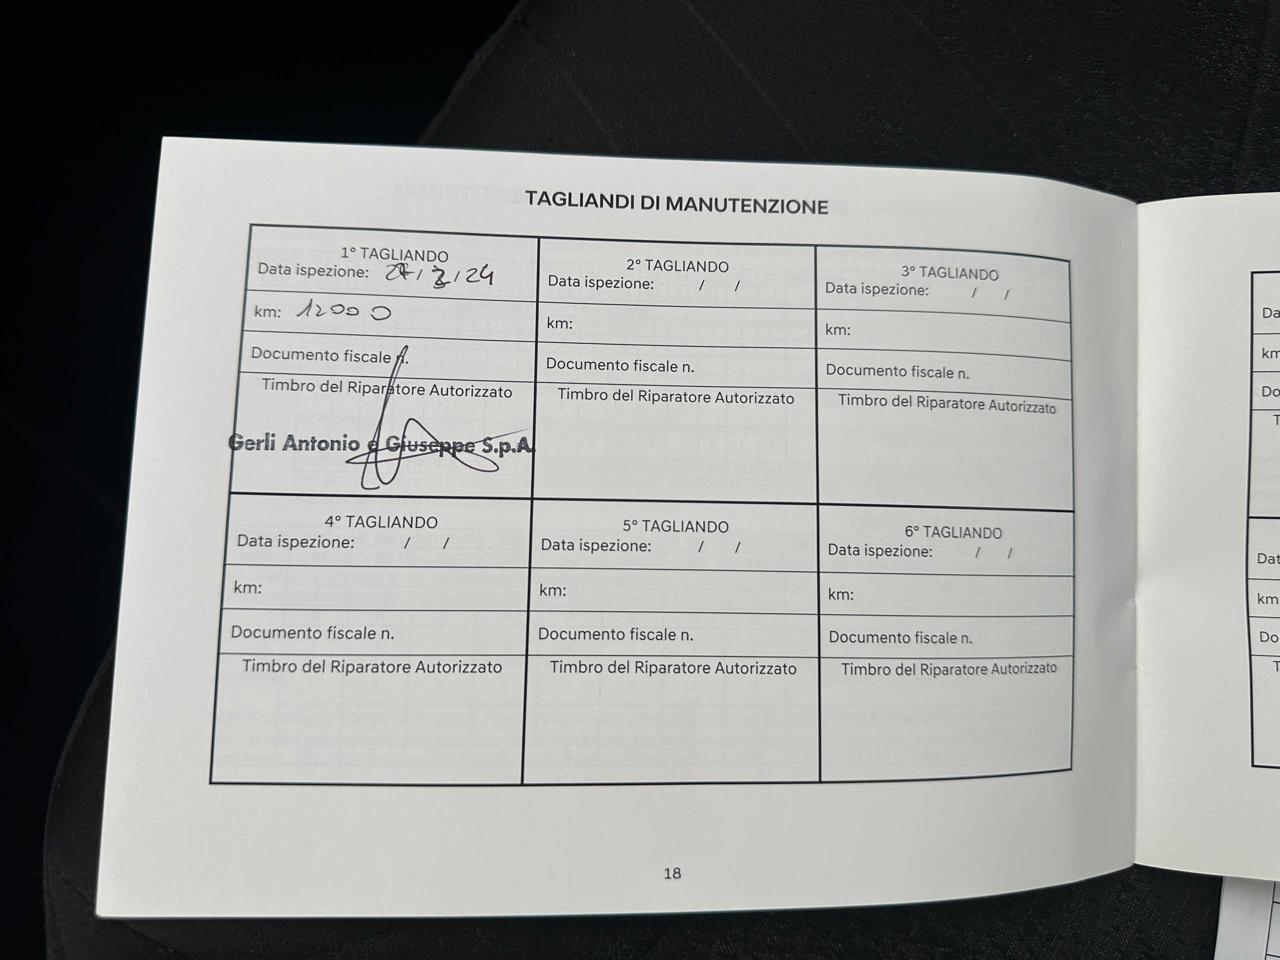 TAGLIANDI DI MANUTENZIONE
1° TAGLIANDO
Data ispezione: / /24
km: 12000
Documento fiscale n.
Timbro del Riparatore Autorizzato
Gerli Antonio e Giuseppe S.p.A.
2° TAGLIANDO
Data ispezione: / /
km:
Documento fiscale n.
Timbro del Riparatore Autorizzato
3° TAGLIANDO
Data ispezione: / /
km:
Documento fiscale n.
Timbro del Riparatore Autorizzato
4° TAGLIANDO
Data ispezione: / /
km:
Documento fiscale n.
Timbro del Riparatore Autorizzato
5° TAGLIANDO
Data ispezione: / /
km:
Documento fiscale n.
Timbro del Riparatore Autorizzato
6° TAGLIANDO
Data ispezione: / /
km:
Documento fiscale n.
Timbro del Riparatore Autorizzato
18
Da
km
Do
T
Dat
km
Do
T